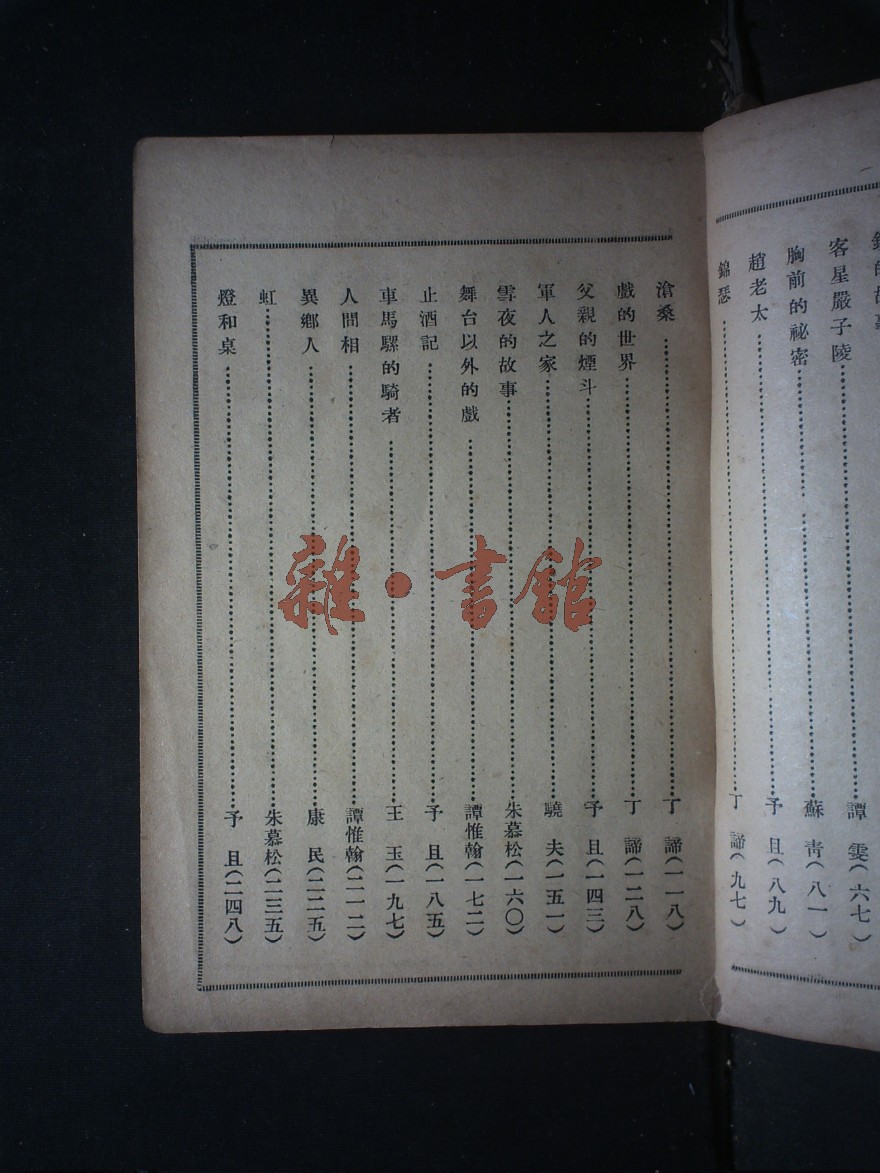 的故事
客星嚴子陵……譚　雯(六七)
胸前的祕密……蘇　靑(八一)
趙老太……予　且(八九)
錦瑟……丁　諦(九七)
滄桑……丁　諦(一一八)
戲的世界……丁　諦(一二八)
父親的煙斗……予　且(一四三)
軍人之家……曉　夫(一五一)
雪夜的故事……朱慕松(一六〇)
舞台以外的戲……譚惟翰(一七二)
止酒記……予　且(一八五)
車馬騾的騎者……王　玉(一九七)
人間相……譚惟翰(二一二)
異鄉人……康　民(二二五)
虹……朱慕松(二三五)
燈和桌……予　且(二四八)
雜·書館